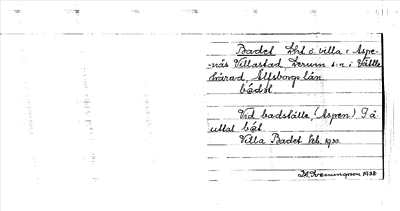 Badet Lht o. villa i Aspe-
näs Villastad, Lerum s:n i Vättle
härad, Älfsborgs län.
bàdət
Vid badställe, (Aspen) I ä
uttal bàt
Villa Badet feb. 1930.
1938